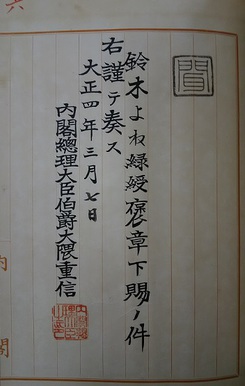 聞
鈴木よね緑綬褒章下賜ノ件
右謹テ奏ス
大正四年三月七日
内閣總理大臣伯爵大隈重信
内
閣